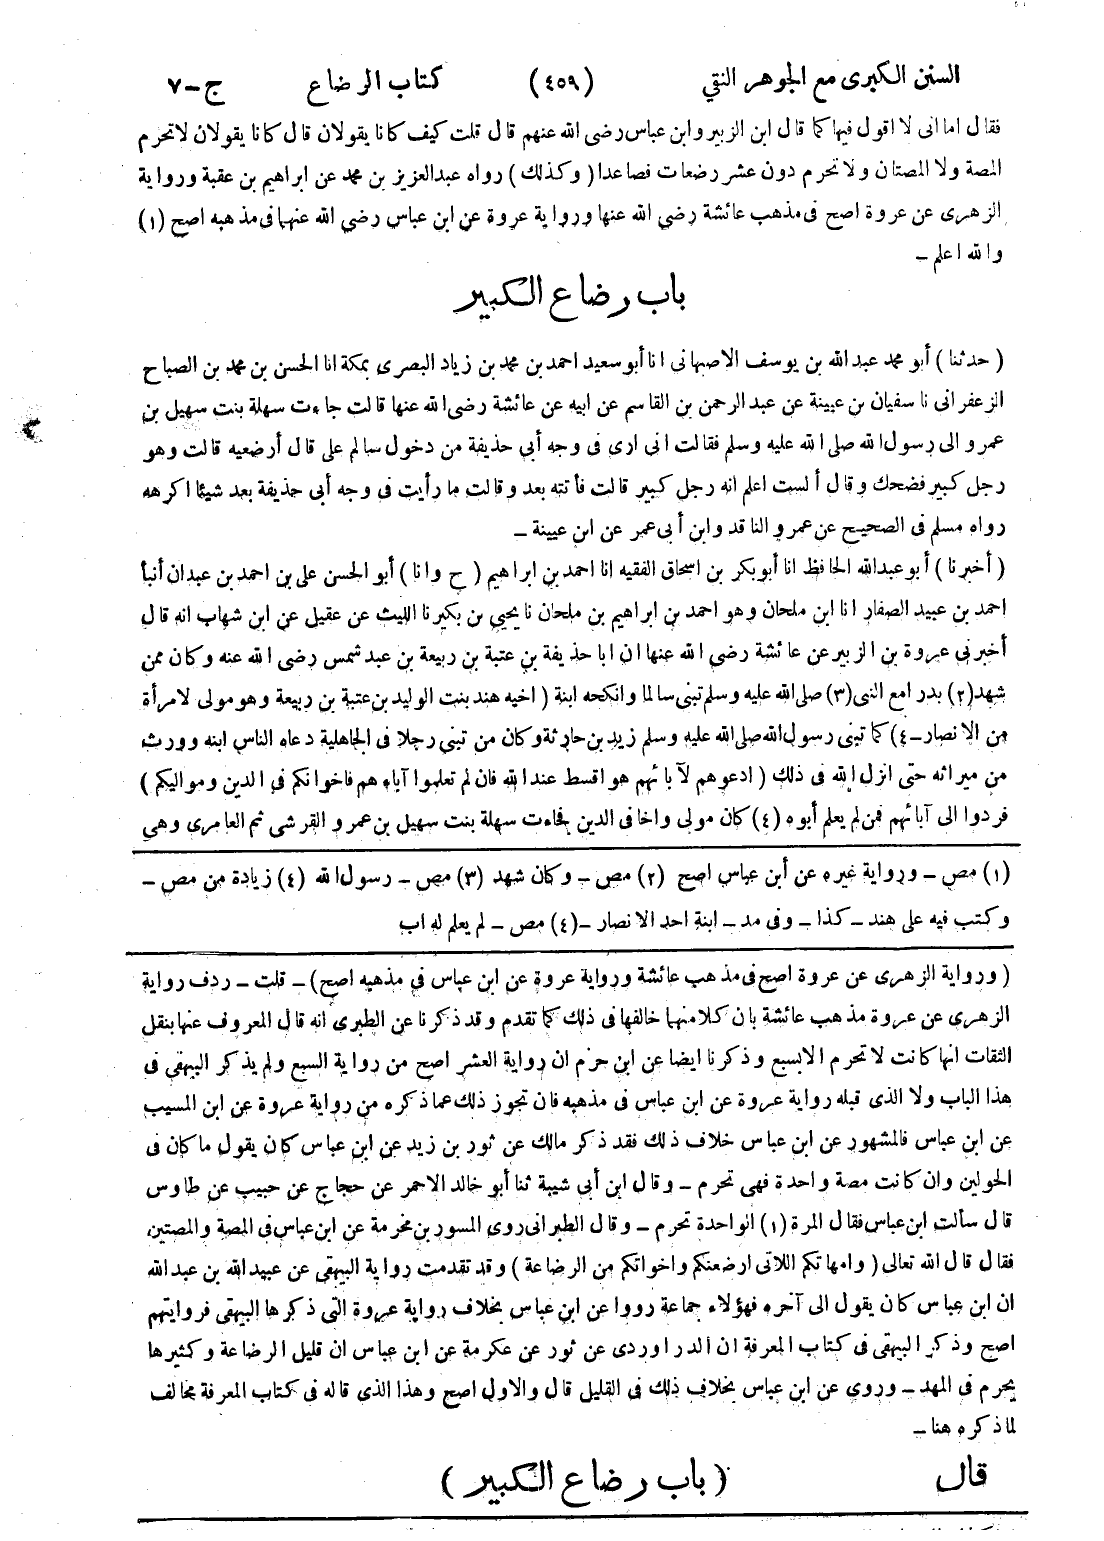 السنن الكبرى مع الجوهر النقي (٤٥٩) كتاب الرضاع ج-٧
فقال اما انى لا اقول فيها كما قال ابن الزبير وابن عباس رضى الله عنهم قال قلت كيف كانا يقولان قال كانا يقولان لا تحرم
المصة ولا المصتان ولا تحرم دون عشر رضعات فصاعدا (وكذلك) رواه عبدالعزيز بن محمد عن ابراهيم بن عقبة ورواية
الزهرى عن عروة اصح فى مذهب عائشة رضي الله عنها ورواية عروة عن ابن عباس رضي الله عنهما فى مذهبه اصح (١)
والله اعلم -
باب رضاع الكبير
(حدثنا) أبو محمد عبدالله بن يوسف الاصبهانى انا أبو سعيد احمد بن محمد بن زياد البصرى بمكة انا الحسن بن محمد بن الصباح
الزعفرانى نا سفيان بن عيينة عن عبد الرحمن بن القاسم عن ابيه عن عائشة رضى الله عنها قالت جاءت سهلة بنت سهيل بن
عمرو الى رسول الله صلى الله عليه وسلم فقالت انى ارى فى وجه أبي حذيفة من دخول سالم على قال أرضعيه قالت وهو
رجل كبير فضحك وقال ألست اعلم انه رجل كبير قالت فأتته بعد وقالت ما رأيت فى وجه أبى حذيفة بعد شيئا اكرهه
رواه مسلم فى الصحيح عن عمرو الناقد وابن أبى عمر عن ابن عيينة -
(أخبرنا) أبو عبدالله الحافظ انا أبوبكر بن اسحاق الفقيه انا احمد بن ابراهيم (ح وانا) أبو الحسن على بن احمد بن عبدان أنبأ
احمد بن عبيد الصفار انا ابن ملحان وهو احمد بن ابراهيم بن ملحان نا يحيى بن بكير نا الليث عن عقيل عن ابن شهاب انه قال
أخبرنى عروة بن الزبير عن عائشة رضى الله عنها ان ابا حذيفة بن عتبة بن ربيعة بن عبد شمس رضى الله عنه وكان ممن
شهد (٢) بدرا مع النبى (٣) صلى الله عليه وسلم تبنى سالما وانكحه ابنة (اخيه هند بنت الوليد بن عتبة بن ربيعة وهو مولى لامرأة
من الانصار-٤) كما تبنى رسول الله صلى الله عليه وسلم زيد بن حارثة وكان من تبنى رجلا فى الجاهلية دعاه الناس ابنه وورث
من ميراثه حتى انزل الله فى ذلك (ادعوهم لآبائهم هو اقسط عند الله فان لم تعلموا آباءهم فاخوانكم فى الدين ومواليكم)
فردوا الى آبائهم فمن لم يعلم أبوه (٤) كان مولى واخا فى الدين فجاءت سهلة بنت سهيل بن عمرو القرشى ثم العامرى وهى
(١) مص - ورواية غيره عن أبن عباس اصح (٢) مص - وكان شهد (٣) مص - رسول الله (٤) زيادة من مص -
وكتب فيه على هند - كذا - وفى مد - ابنة احد الانصار - (٤) مص - لم يعلم له اب
(ورواية الزهرى عن عروة اصح فى مذهب عائشة ورواية عروة عن ابن عباس في مذهبه اصح) - قلت - ردف رواية
الزهرى عن عروة مذهب عائشة بان كلا منهما خالفها فى ذلك كما تقدم وقد ذكرنا عن الطبرى أنه قال المعروف عنها بنقل
الثقات انها كانت لا تحرم الا بسبع وذكرنا ايضا عن ابن حزم ان رواية العشر اصح من رواية السبع ولم يذكر البيهقى فى
هذا الباب ولا الذى قبله رواية عروة عن ابن عباس فى مذهبه فان تجوز ذلك عما ذكره من رواية عروة عن ابن المسيب
عن ابن عباس فالمشهور عن ابن عباس خلاف ذلك فقد ذكر مالك عن ثور بن زيد عن ابن عباس كان يقول ما كان فى
الحولين وان كانت مصة واحدة فهى تحرم - وقال ابن أبى شيبة ثنا أبو خالد الاحمر عن حجاج عن حبيب عن طاوس
قال سألت ابن عباس فقال المرة (١) الواحدة تحرم - وقال الطبرانى روى المسور بن مخرمة عن ابن عباس فى المصة والمصتين
فقال قال الله تعالى (وامهاتكم اللاتى ارضعنكم واخواتكم من الرضاعة) وقد تقدمت رواية البيهقى عن عبيدالله بن عبدالله
ان ابن عباس كان يقول الى آخره فهؤلاء جماعة رووا عن ابن عباس بخلاف رواية عروة التى ذكرها البيهقى فروايتهم
اصح وذكر البيهقى فى كتاب المعرفة ان الدراوردى عن ثور عن عكرمة عن ابن عباس ان قليل الرضاعة وكثيرها
يحرم فى المهد - وروى عن ابن عباس بخلاف ذلك فى القليل قال والاول اصح وهذا الذى قاله فى كتاب المعرفة مخالف
لما ذكره هنا -
قال (باب رضاع الكبير)